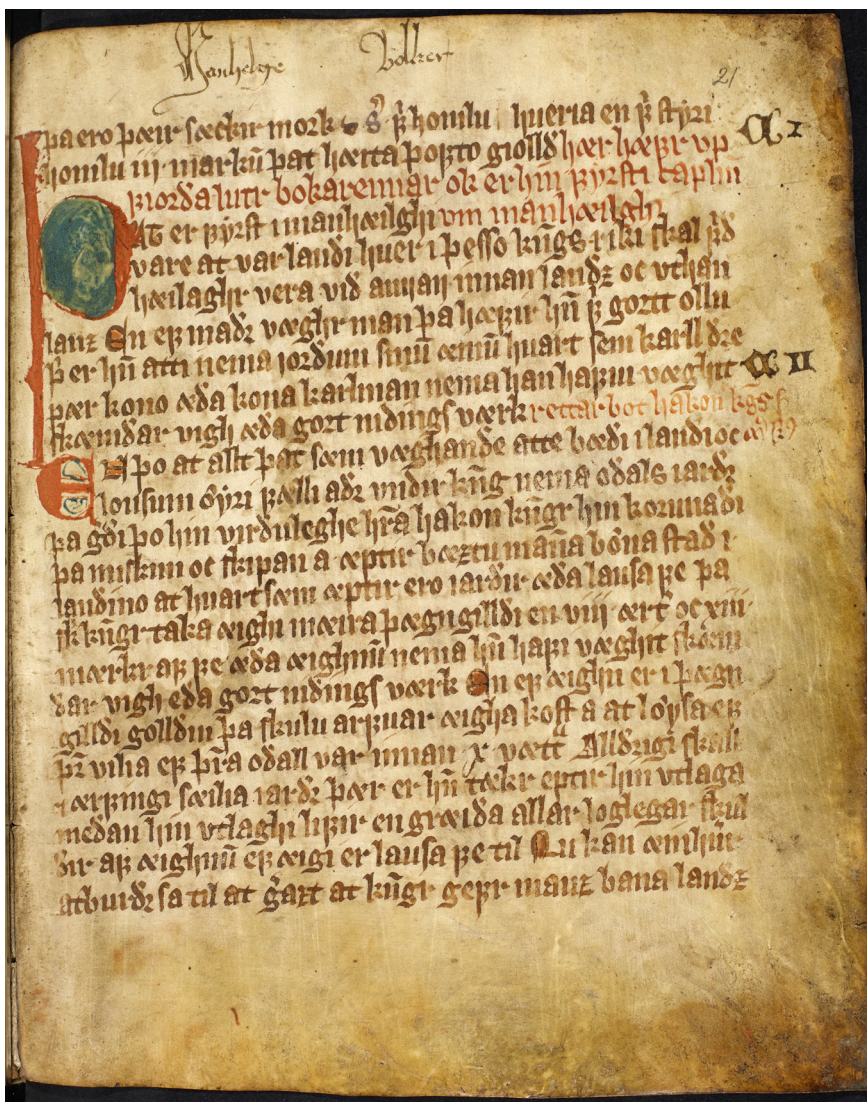 Manhelge Bolker
21
þa ero þæir sæckir mork s̉ ꝼ̉ homlu hueria en ꝼ̉ styri
homlu iij markū þat hæita þorto giolld hær hæꝼr vp
ꝼiorda lutr bokarennar ok er hin ꝼyrsti capłm
Þat er ꝼyrst i manhæilghi vm manhæilghi
C I
vare at var landi huer i þesso kūgs riki skal ꝼ̉d
hæilaghr vera vid annan innan landz oc vthan
lanz En eꝼ madꝛ væghr man þa hæꝼir hn̄ ꝼ̉ gortt ollu
þ̉ er hn̄ atti nema iordum sinū æinū huart sem karll dre
pær kono æda kona karlman nema han haꝼui væghit
C II
skæmdar vigh æda gort nidings værk rettar bot hakon kgs
En þo at allt þat sæm væghande atte bædi i landi oc
lousum øyri ꝼælli adꝛ vndir kūg nema odals iardꝛ
þa gd̉i þo hin virduleghe hr̄a hakon kūgr hin korunadi
þa miskun oc skipan a æptir bæztu manna bøna stad i
landino at huart sæm æptir ero iardir æda lausa ꝼe þa
sk̄ kūgr taka æighi mæira þægngilldi en viij ært̉ oc xiii
mærkr aꝼ ꝼe æda æighnū nema hn̄ haꝼi væghit skæm
dar vigh eda gort nidings værk En eꝼ æighn er i þægn
gilldi golldin þa skulu arꝼuar æigha kost a at løysa eꝼ
þr̄ vilia eꝼ þr̄a odall var innan x vætt̉ Alldrigi skall
ærꝼingi sæilia iardꝛ þær er hn̄ tækr eptir hin vtlaga
medan hin vtlaghi liꝼir en græida allar loglegar skul
dir aꝼ æighnū eꝼ æigi er lausa ꝼe til Nu kan æinhuer
atburdꝛ sa til at g̉azt at kūgr geꝼr manz bana landz